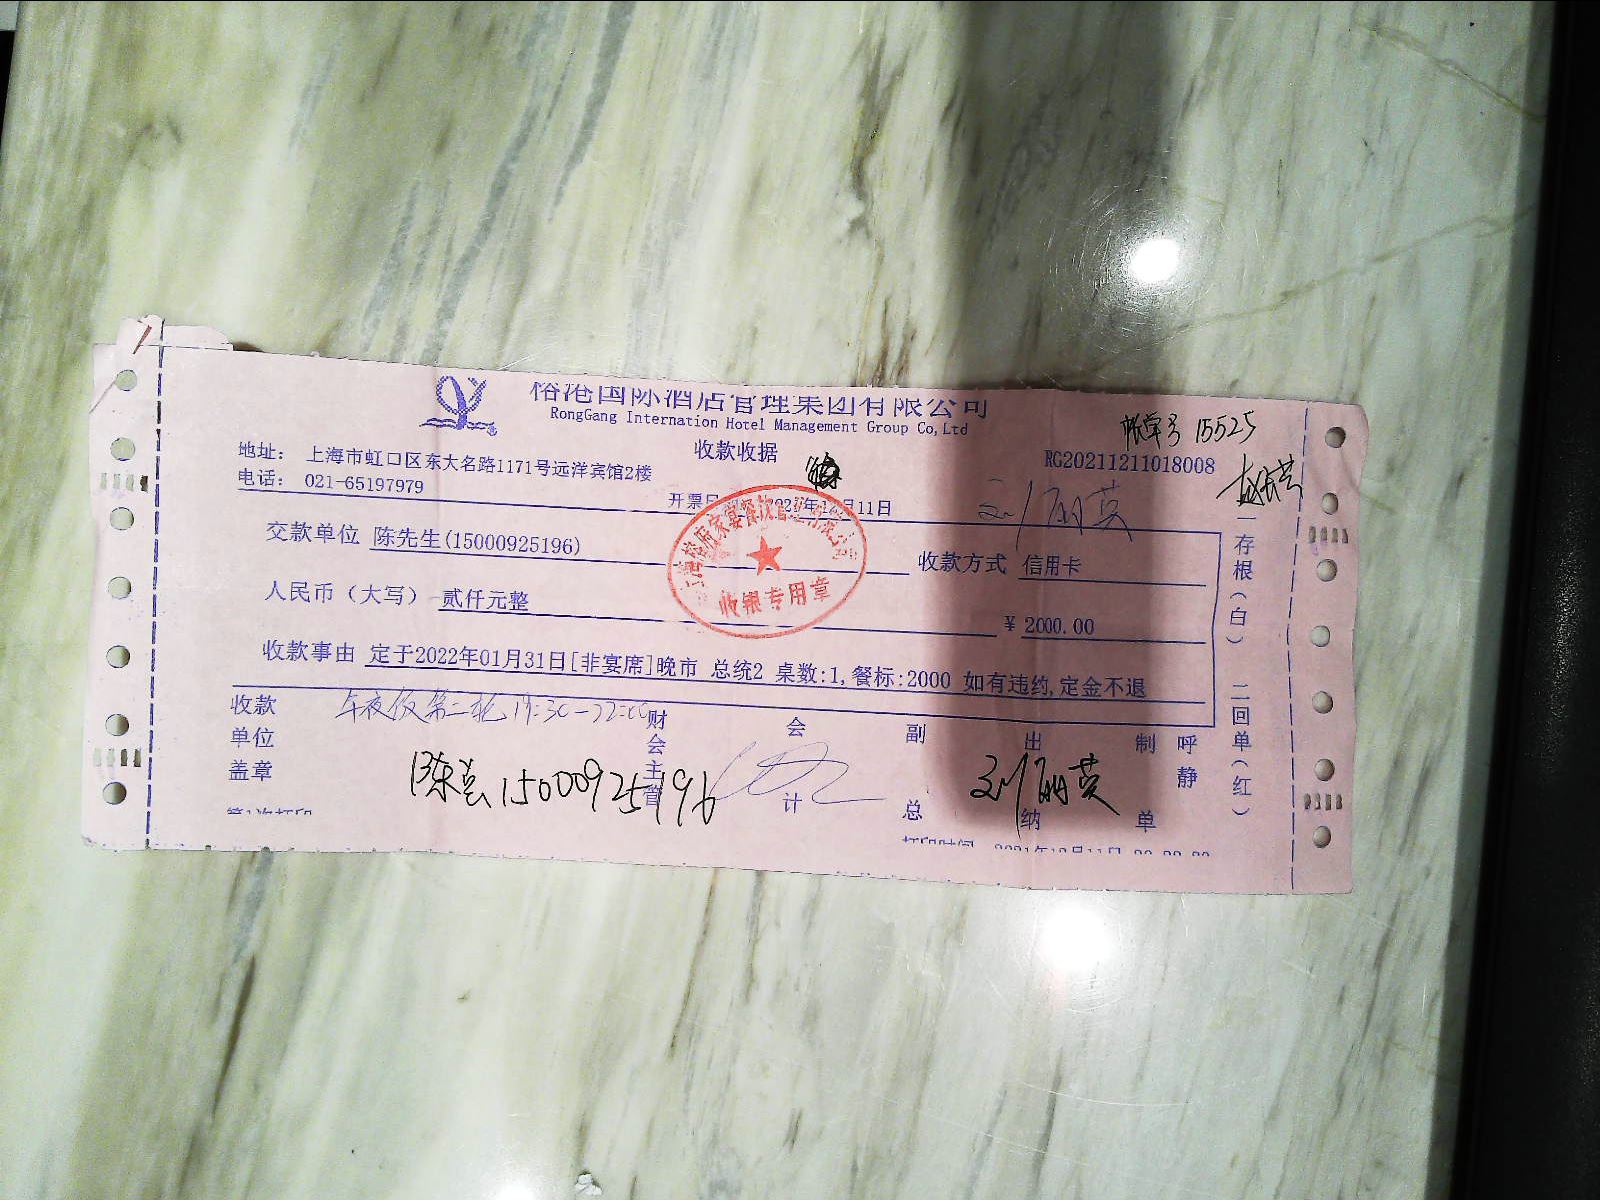 榕港国际酒店管理集团有限公司
RongGang Internation Hotel Management Group Co,Ltd
帐单号 15525
地址： 上海市虹口区东大名路1171号远洋宾馆2楼
收款收据
RG20211211018008
电话： 021-65197979
开票日 2021年12月11日
刘丽英
交款单位 陈先生(15000925196)
收款方式 信用卡
人民币（大写） 贰仟元整
¥ 2000.00
收款事由 定于2022年01月31日[非宴席]晚市 总统2 桌数:1,餐标:2000 如有违约,定金不退
收银专用章
年夜饭第二轮 19:30-22:00
收款单位盖章
财会主管
会计
副总
出纳
制单
呼静
陈 15000925196
刘丽英
一存根(白)
二回单(红)
第1次打印
打印时间 2021年12月11日